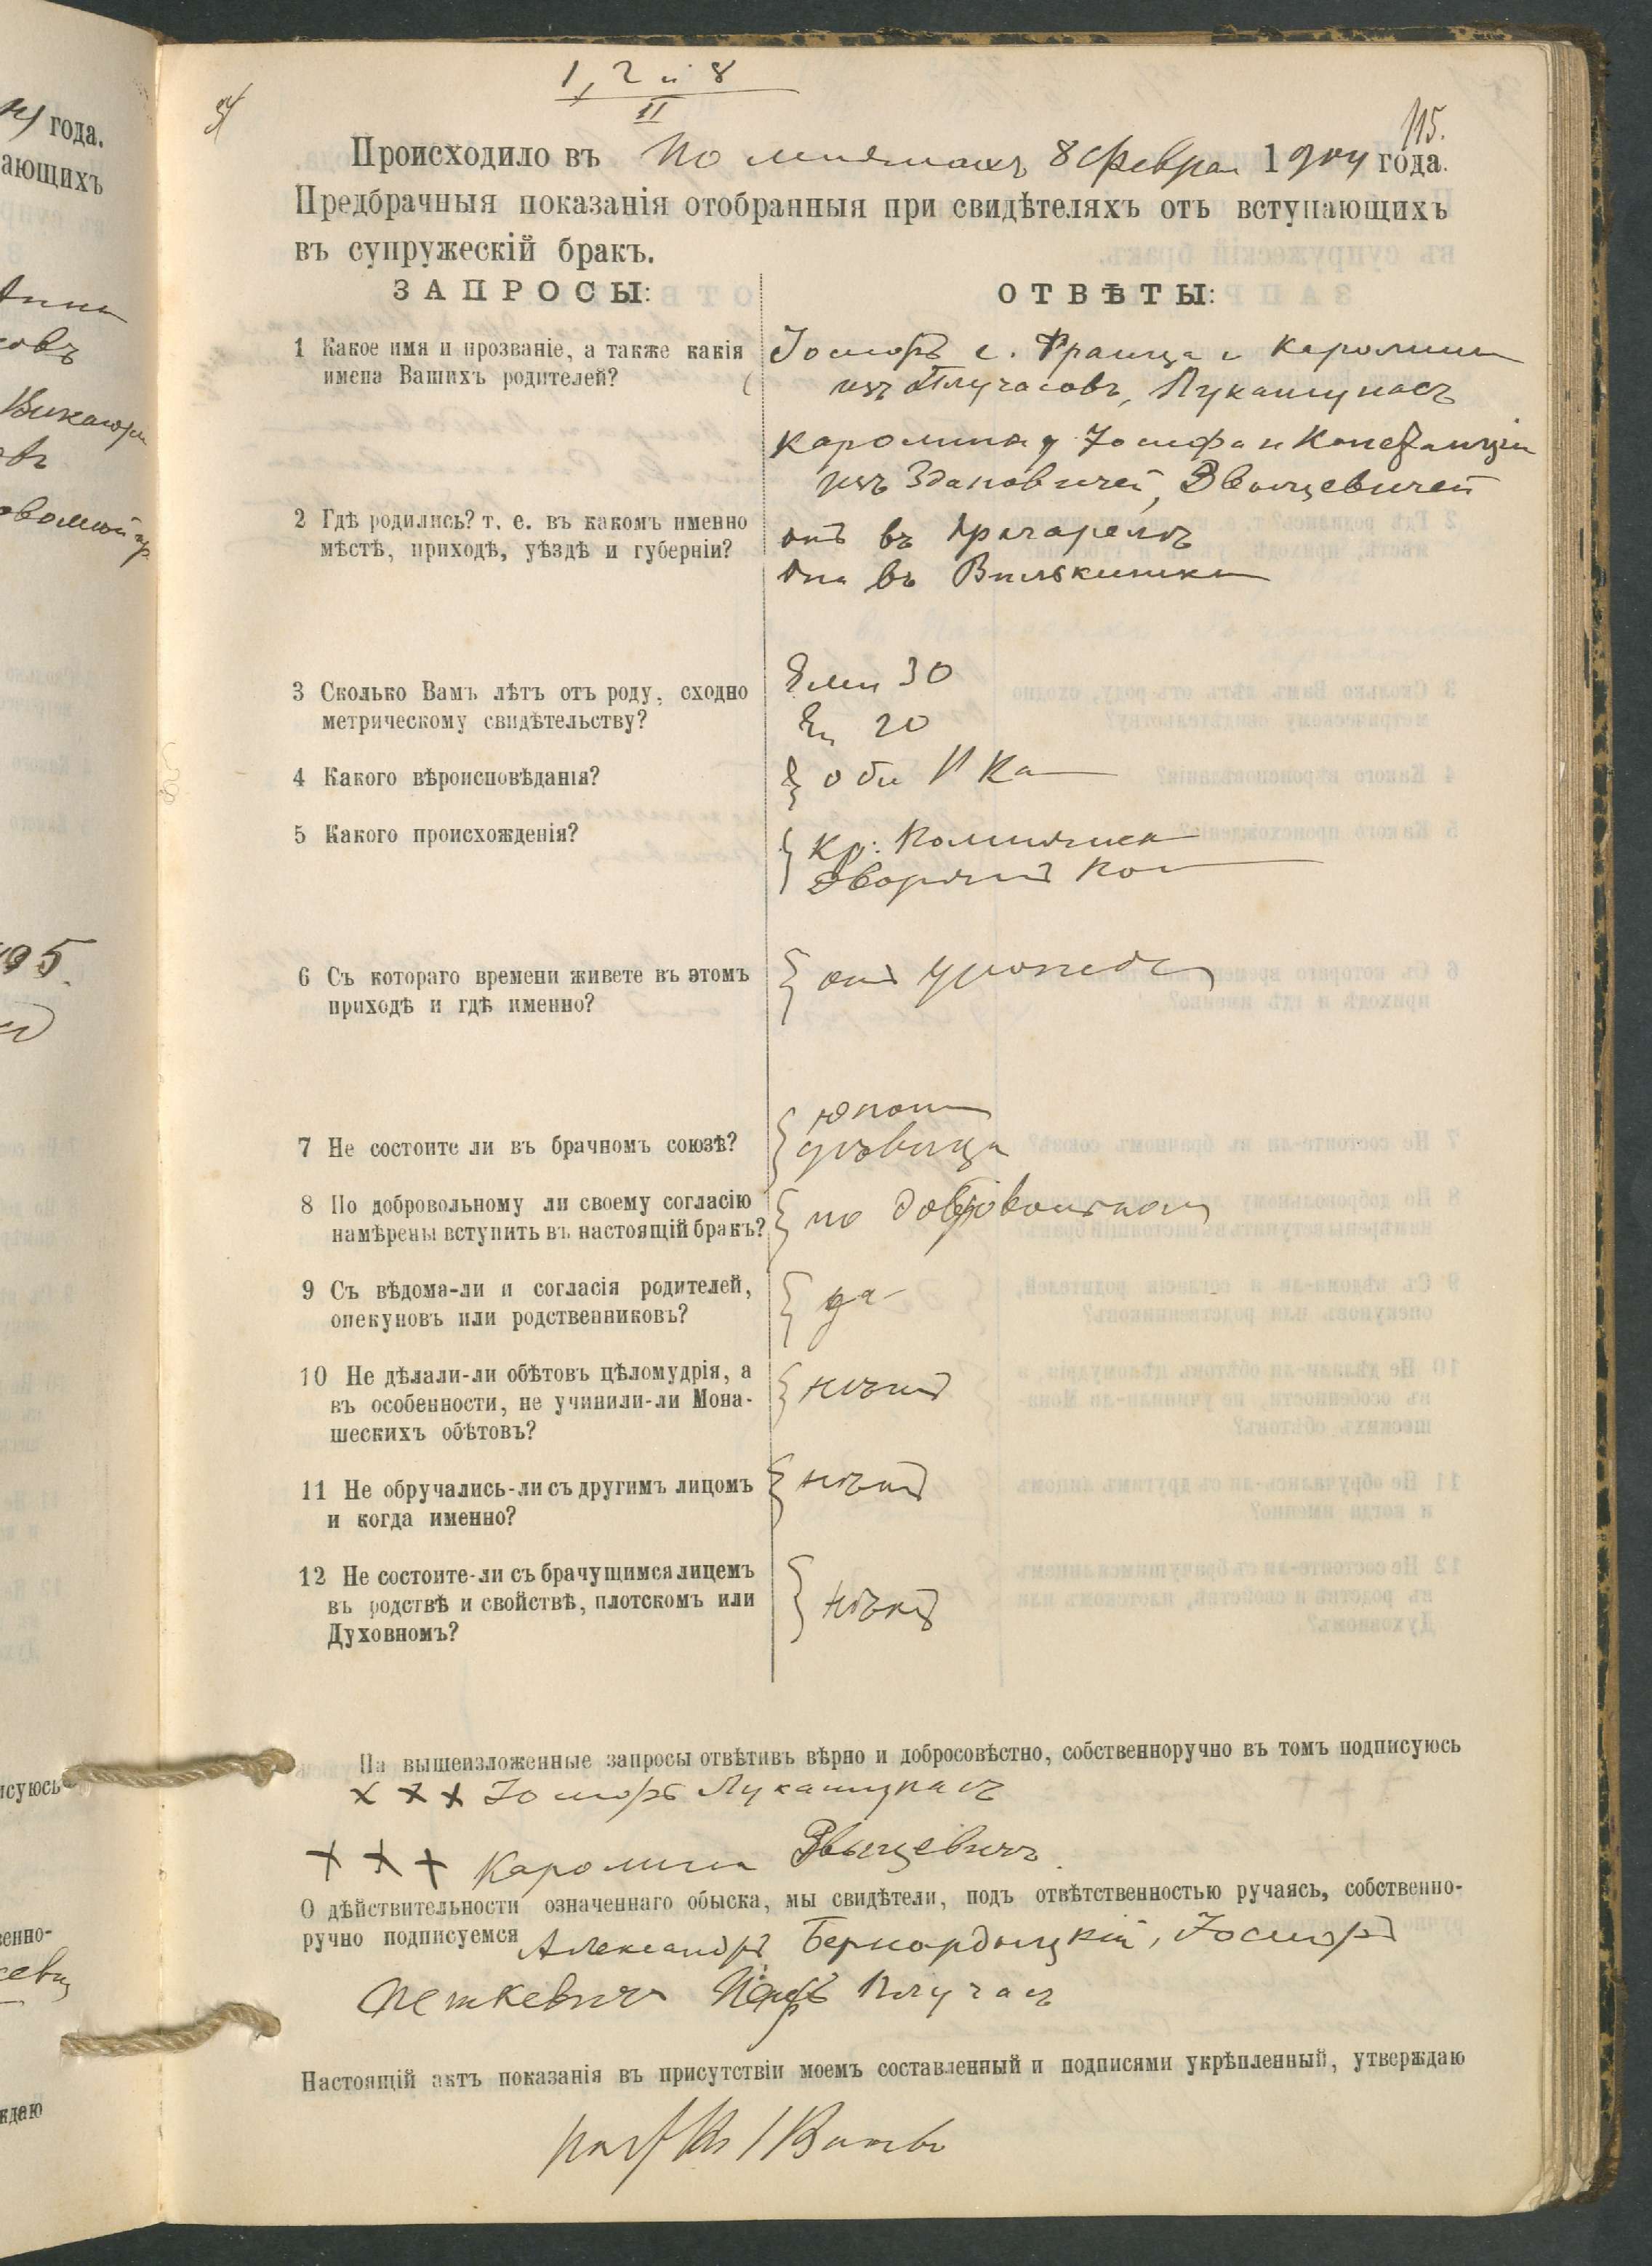 1, 2 и 8
II
115.
Происходило въ 8 Феврал 1904 года.
Предбрачныя показанія отобранныя при свидѣтеляхъ отъ вступающихъ
въ супружескій бракъ.
ЗАПРОСЫ:
ОТВѢТЫ:
1 Какое имя и прозваніе, а также какія
имена Вашихъ родителей?
Іосифъ с. Франца и Каролины
изъ Плучасовъ, Лукашунасъ
Каролина д Іосифа и Констанціи
изъ Здановичей,
2 Гдѣ родились? т. е. въ какомъ именно
мѣстѣ, приходѣ, уѣздѣ и губерніи?
онъ въ
она въ
3 Сколько Вамъ лѣтъ отъ роду, сходно
метрическому свидѣтельству?
Ему 30
Ей 20
4 Какого вѣроисповѣданія?
оба Р Ка
5 Какого происхожденія?
Кр.
Дворян Ков
6 Съ котораго времени живете въ этомъ
приходѣ и гдѣ именно?
отъ рожде
7 Не состоите ли въ брачномъ союзѣ?
юнош
дѣвица
8 По добровольному ли своему согласію
намѣрены вступить въ настоящій бракъ?
по добровольном
9 Съ вѣдома-ли и согласія родителей,
опекуновъ или родственниковъ?
да
10 Не дѣлали-ли обѣтовъ цѣломудрія, а
въ особенности, не учинили-ли Мона-
шескихъ обѣтовъ?
нѣтъ
11 Не обручались-ли съ другимъ лицомъ
и когда именно?
нѣтъ
12 Не состоите-ли съ брачущимся лицемъ
въ родствѣ и свойствѣ, плотскомъ или
Духовномъ?
нѣтъ
На вышеизложенные запросы отвѣтивъ вѣрно и добросовѣстно, собственноручно въ томъ подписуюсь
x x x Іосифъ Лукашунасъ
+ + + Каролина
О дѣйствительности означеннаго обыска, мы свидѣтели, подъ отвѣтственностью ручаясь, собственно-
ручно подписуемся Александръ Бернардыцкій, Іосифъ
Петкевичъ Плучасъ
Настоящій актъ показанія въ присутствіи моемъ составленный и подписями укрѣпленный, утверждаю